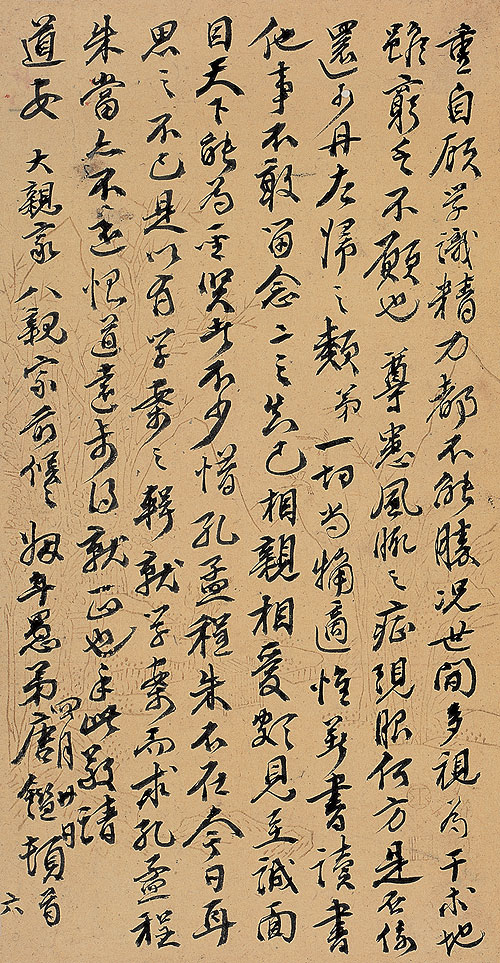 重自顾学識精力都不能勝况世間多視為干求地
雖窮乏不願也尊恙風脈之症現服何方是否係
還少丹左歸之類弟一切尚犕適惟著書讀書
他事不敢留念二三知己相親相愛頗見至誠面
目天下能為聖賢者不少惜孔孟程朱不在今日耳
思之不已是以有学案之輯就学案而求孔孟程
朱當亦不遠惟道遠未得就正也手此敬請
道安 大親家八親家前候之姻年愚弟唐鑑頓首
四月廿日
六